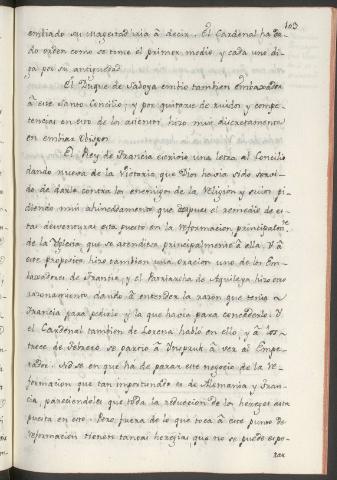 103
embiado su magestad iria à decir. El Cardenal ha da-
do orden como se tome el primer medio y cada uno di-
ga por su antiguedad
El Duque de Saboya embio tambien Embaxador
à este santo Concilio y por quitarse de ruidos y compe-
tencias en esto de los asientos hizo mui discretamente
en embiar Obispo.
El Rey de Francia escrivio una letra al Concilio
dando nueva de la Victoria que Dios havia sido servi-
do de darle contra los enemigos de la Religion y suios pi-
diendo mui ahincadamente que despues el remedio de es-
tas desventuras esta puesto en la reformacion principalmte
de la Yglesia, que se atendiese principalmente à ella. Y à
este proposito hizo tambien una oracion uno de los Em-
baxadores de Francia, y el Patriarcha de Aquileya hizo otro
razonamiento dando à entender la razon que tenia
Francia para pedirlo y la que havia para concederlo. Y
el Cardenal tambien de Lorena habló en ello, y à los
trece de Febrero se partio à Ynspruk à ver al Empe-
rador. No se en que ha de parar este negocio de la re-
formacion que tan importunado es de Alemania y Fran-
cia, pareciendoles que toda la reduccion de los hereges está
puesta en esto. Pero fuera de lo que toca à este punto de
reformacion tienen tantas heregias que no se puede espe-
rar